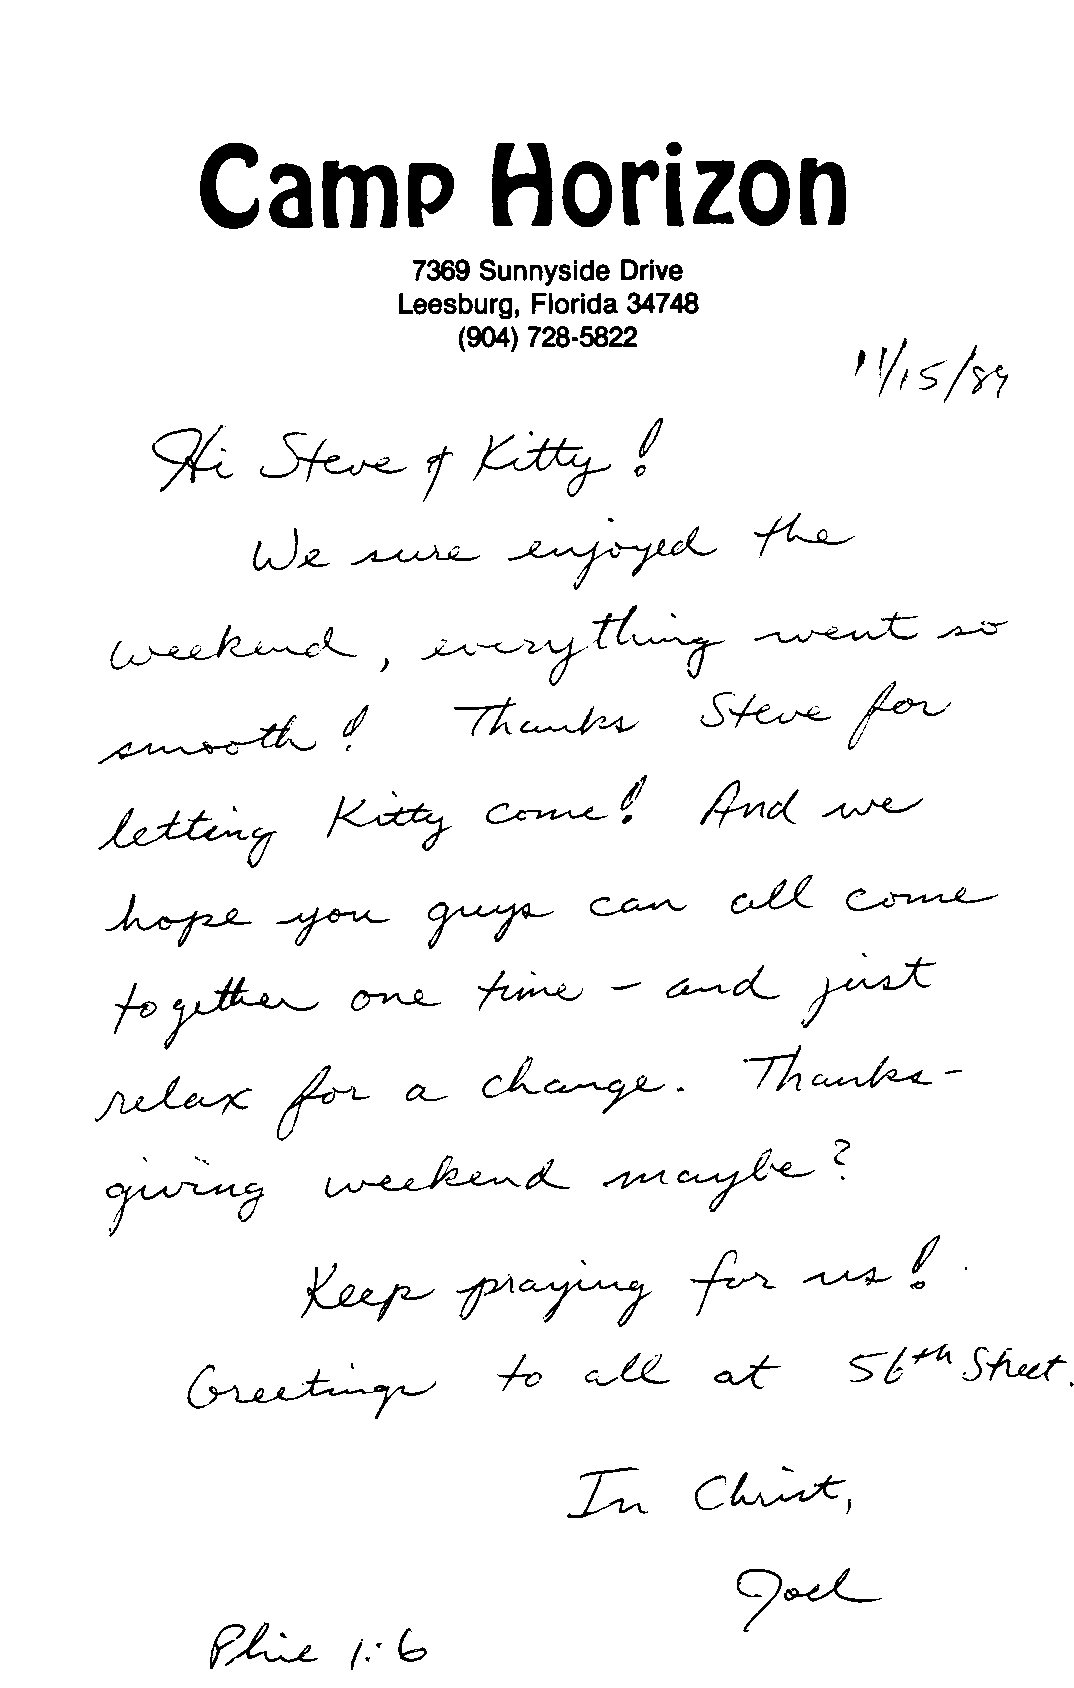 Camp Horizon
7369 Sunnyside Drive
Leesburg, Florida 34748
(904) 728-5822
11/15/89
Hi Steve & Kitty!
We sure enjoyed the
weekend, everything went so
smooth! Thanks Steve for
letting Kitty come! And we
hope you guys can all come
together one time - and just
relax for a change. Thanks-
giving weekend maybe?
Keep praying for us!
Greetings to all at 56th Street.
In Christ,
Joel
1:6